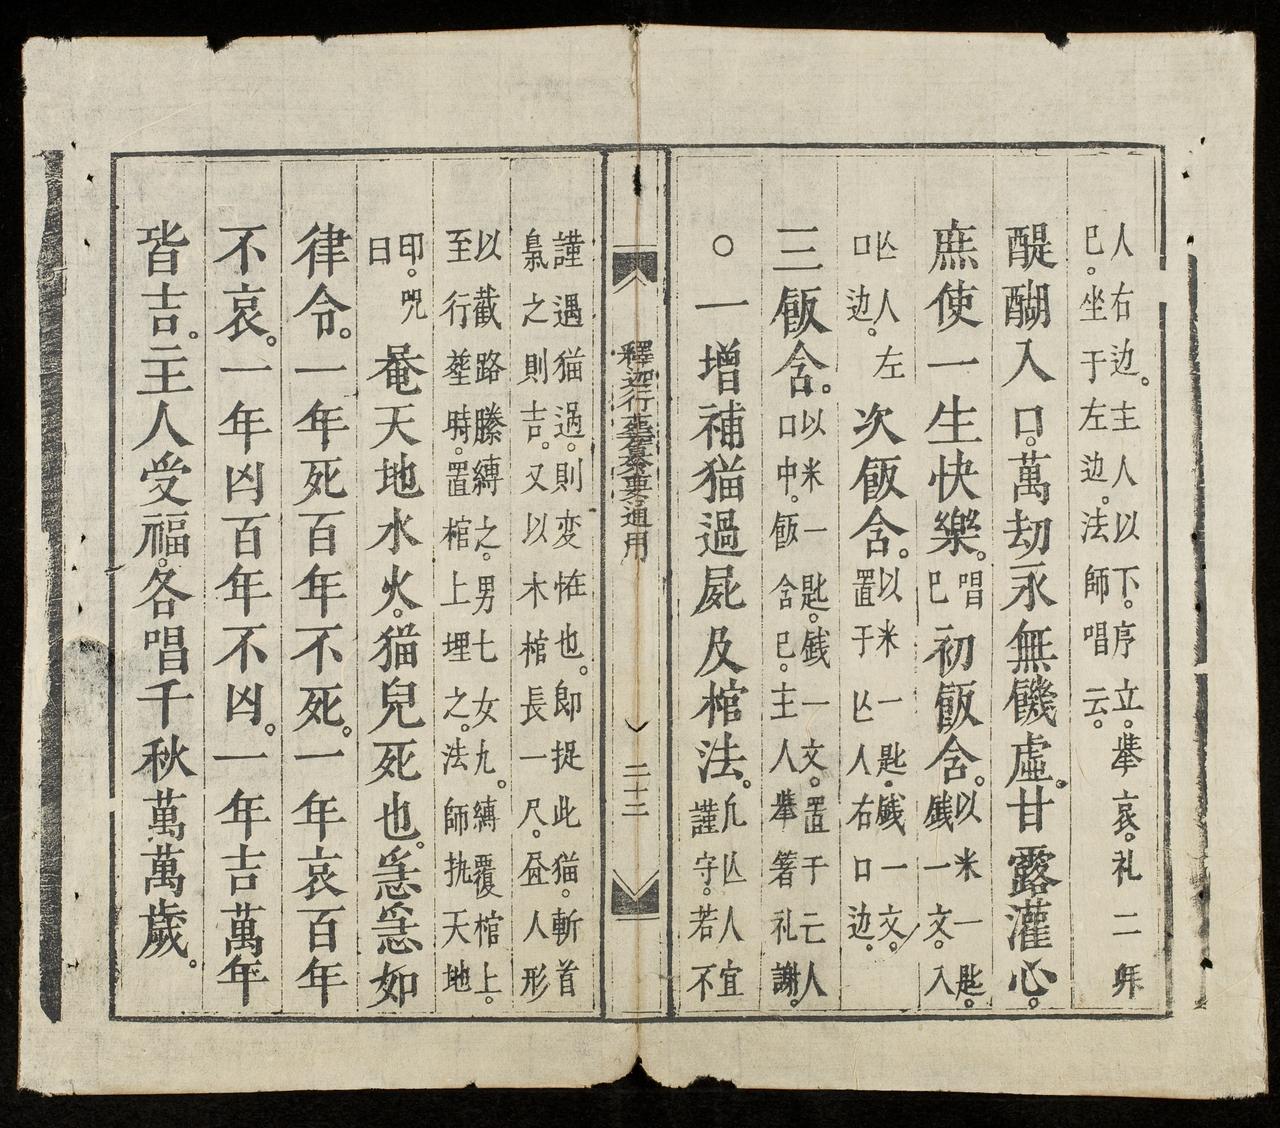 人右边。主人以下。序立。舉哀。礼二拜
已。坐于左边。法師唱云。
醍醐入口。萬劫永無饑虛。甘露灌心。
庶使一生快樂。唱已初飯含。以米一匙。錢一文。入
亾人左口边。次飯含。以米一匙。錢一文。置于亾人右口边。
三飯含。以米一匙。錢一文。置于亡人口中。飯含已。主人舉箸礼謝。
○一增補猫過屍及棺法。凡亾人宜謹守。若不
釋迦行纂要通用
二十二
謹遇猫過。則变恠也。即捉此猫。斬首
梟之則吉。又以木棺長一尺。昼人形
以截路縢縛之。男七女九。縛覆棺上。
至行塟時。置棺上埋之。法師执天地
印。咒曰菴天地水火。猫兒死也。急急如
律令。一年死百年不死。一年哀百年
不哀。一年凶百年不凶。一年吉萬年
皆吉。主人受福。各唱千秋萬萬歲。